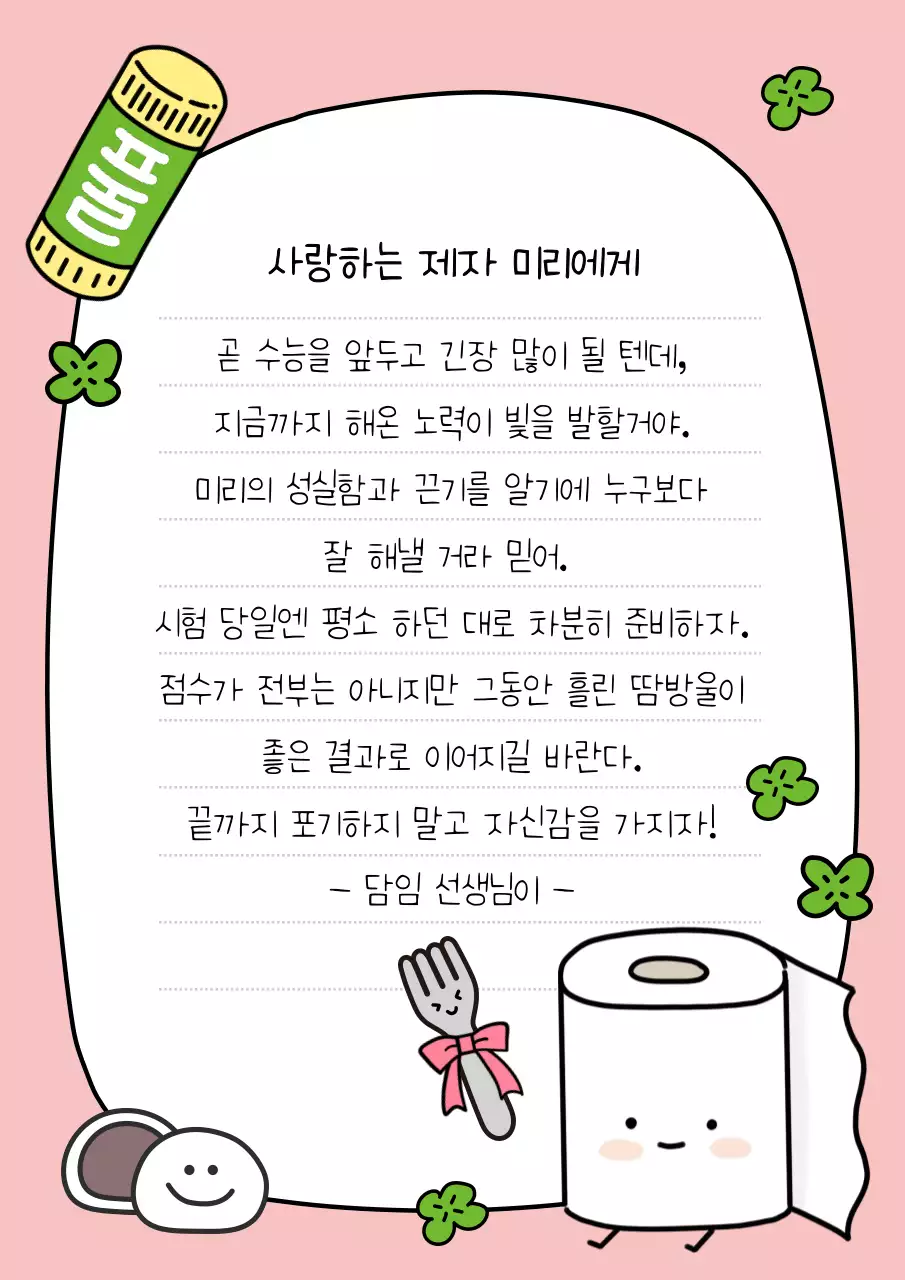 풀
사랑하는 제자 미리에게
곧 수능을 앞두고 긴장 많이 될 텐데,
지금까지 해온 노력이 빛을 발할거야.
미리의 성실함과 끈기를 알기에 누구보다
잘 해낼 거라 믿어.
시험 당일엔 평소 하던 대로 차분히 준비하자.
점수가 전부는 아니지만 그동안 흘린 땀방울이
좋은 결과로 이어지길 바란다.
끝까지 포기하지 말고 자신감을 가지자!
- 담임 선생님이 -